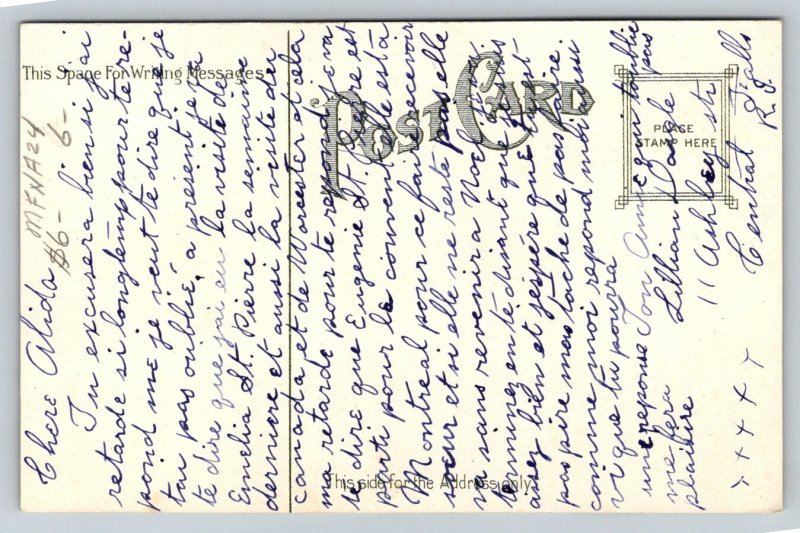 This Space For Writing Messages
POST CARD
PLACE
STAMP HERE
This side for the Address only
MFNA24
$6- 6-
Chere Alida
Tu excusera bien si j'ai
retarde si longtemp pour te re-
pond me je veut te dire que je
tai pas oublié, a présent je va
te dire que j'ai eu la visite de
Emelia St. Pierre la semaine
derniere et aussi la visite du
canada et de Worcester et cela
ma retarde pour te repond. Je va
te dire que Eugenie St. Pierre est
parti pour le couvent elle est à
Montreal pour ce faire recevoir
soeur et si elle ne reste pas elle
va sans revenir a Noel
terminez en te disant que tout
assez bien et j'espère que tu est
pas pire mes tâche de pas faire
comme moi repond moi aussi
vi que tu pourra
une reponse
me fera
plaisire
Ton Amie qui t'oublie pas
Lillian
11 Ashley str
Central Falls
R.I.
x x x x x